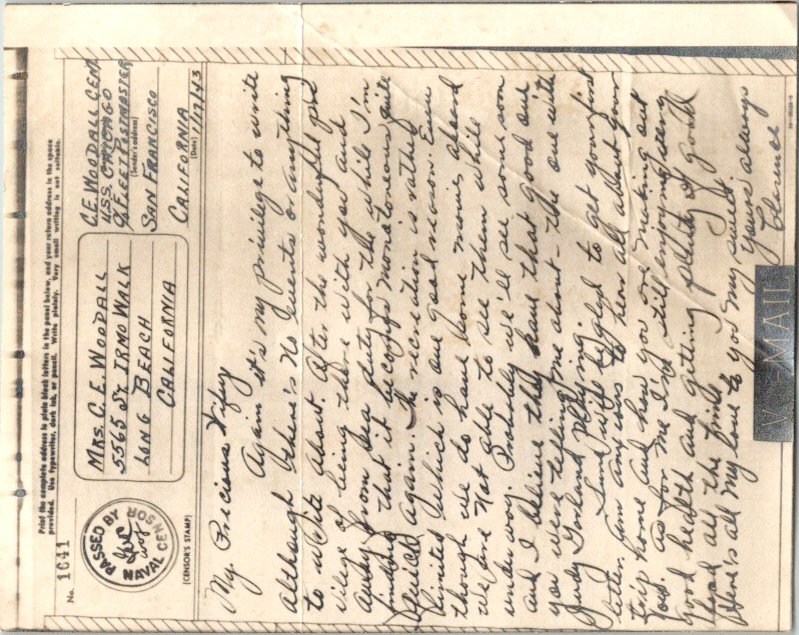 Print the complete address in plain block letters in the panel below, and your return address in the space
provided. Use typewriter, dark ink, or pencil. Write plainly. Very small writing is not suitable.
No. 1641
PASSED BY
NAVAL CENSOR
(CENSOR'S STAMP)
MRS. C. E. WOODALL
5565 St IRMO WALK
LONG BEACH
CALIFORNIA
C.E. WOODALL CEM
U.S.S. CHICAGO
c/o FLEET POSTMASTER
(Sender's address)
SAN FRANCISCO
CALIFORNIA
(Date) 1/12/43
My Precious Wifey
Again it's my privilege to write
although there's no Events or anything
to write about. After the wonderful pri
vilege of being there with you and
away from sea duty for the while I'm
finding that it becomes monotoneous quite
quick again. The recreation is rather
limited which is one good reason. Even
though we do have home movies aboard
we are not able to see them while
under way. Probably we'll see some soon
and I believe they have that good one
you were telling me about - the one with
Judy Garland playing.
Sure will be glad to get your first
letter. Am anxious to hear all about your
trip home and how you are making out
now. As for me I'm still enjoying very
good health and getting plenty of good
food all the time.
Here's all my love to you my sweet
Yours always
Clarence
V-MAIL